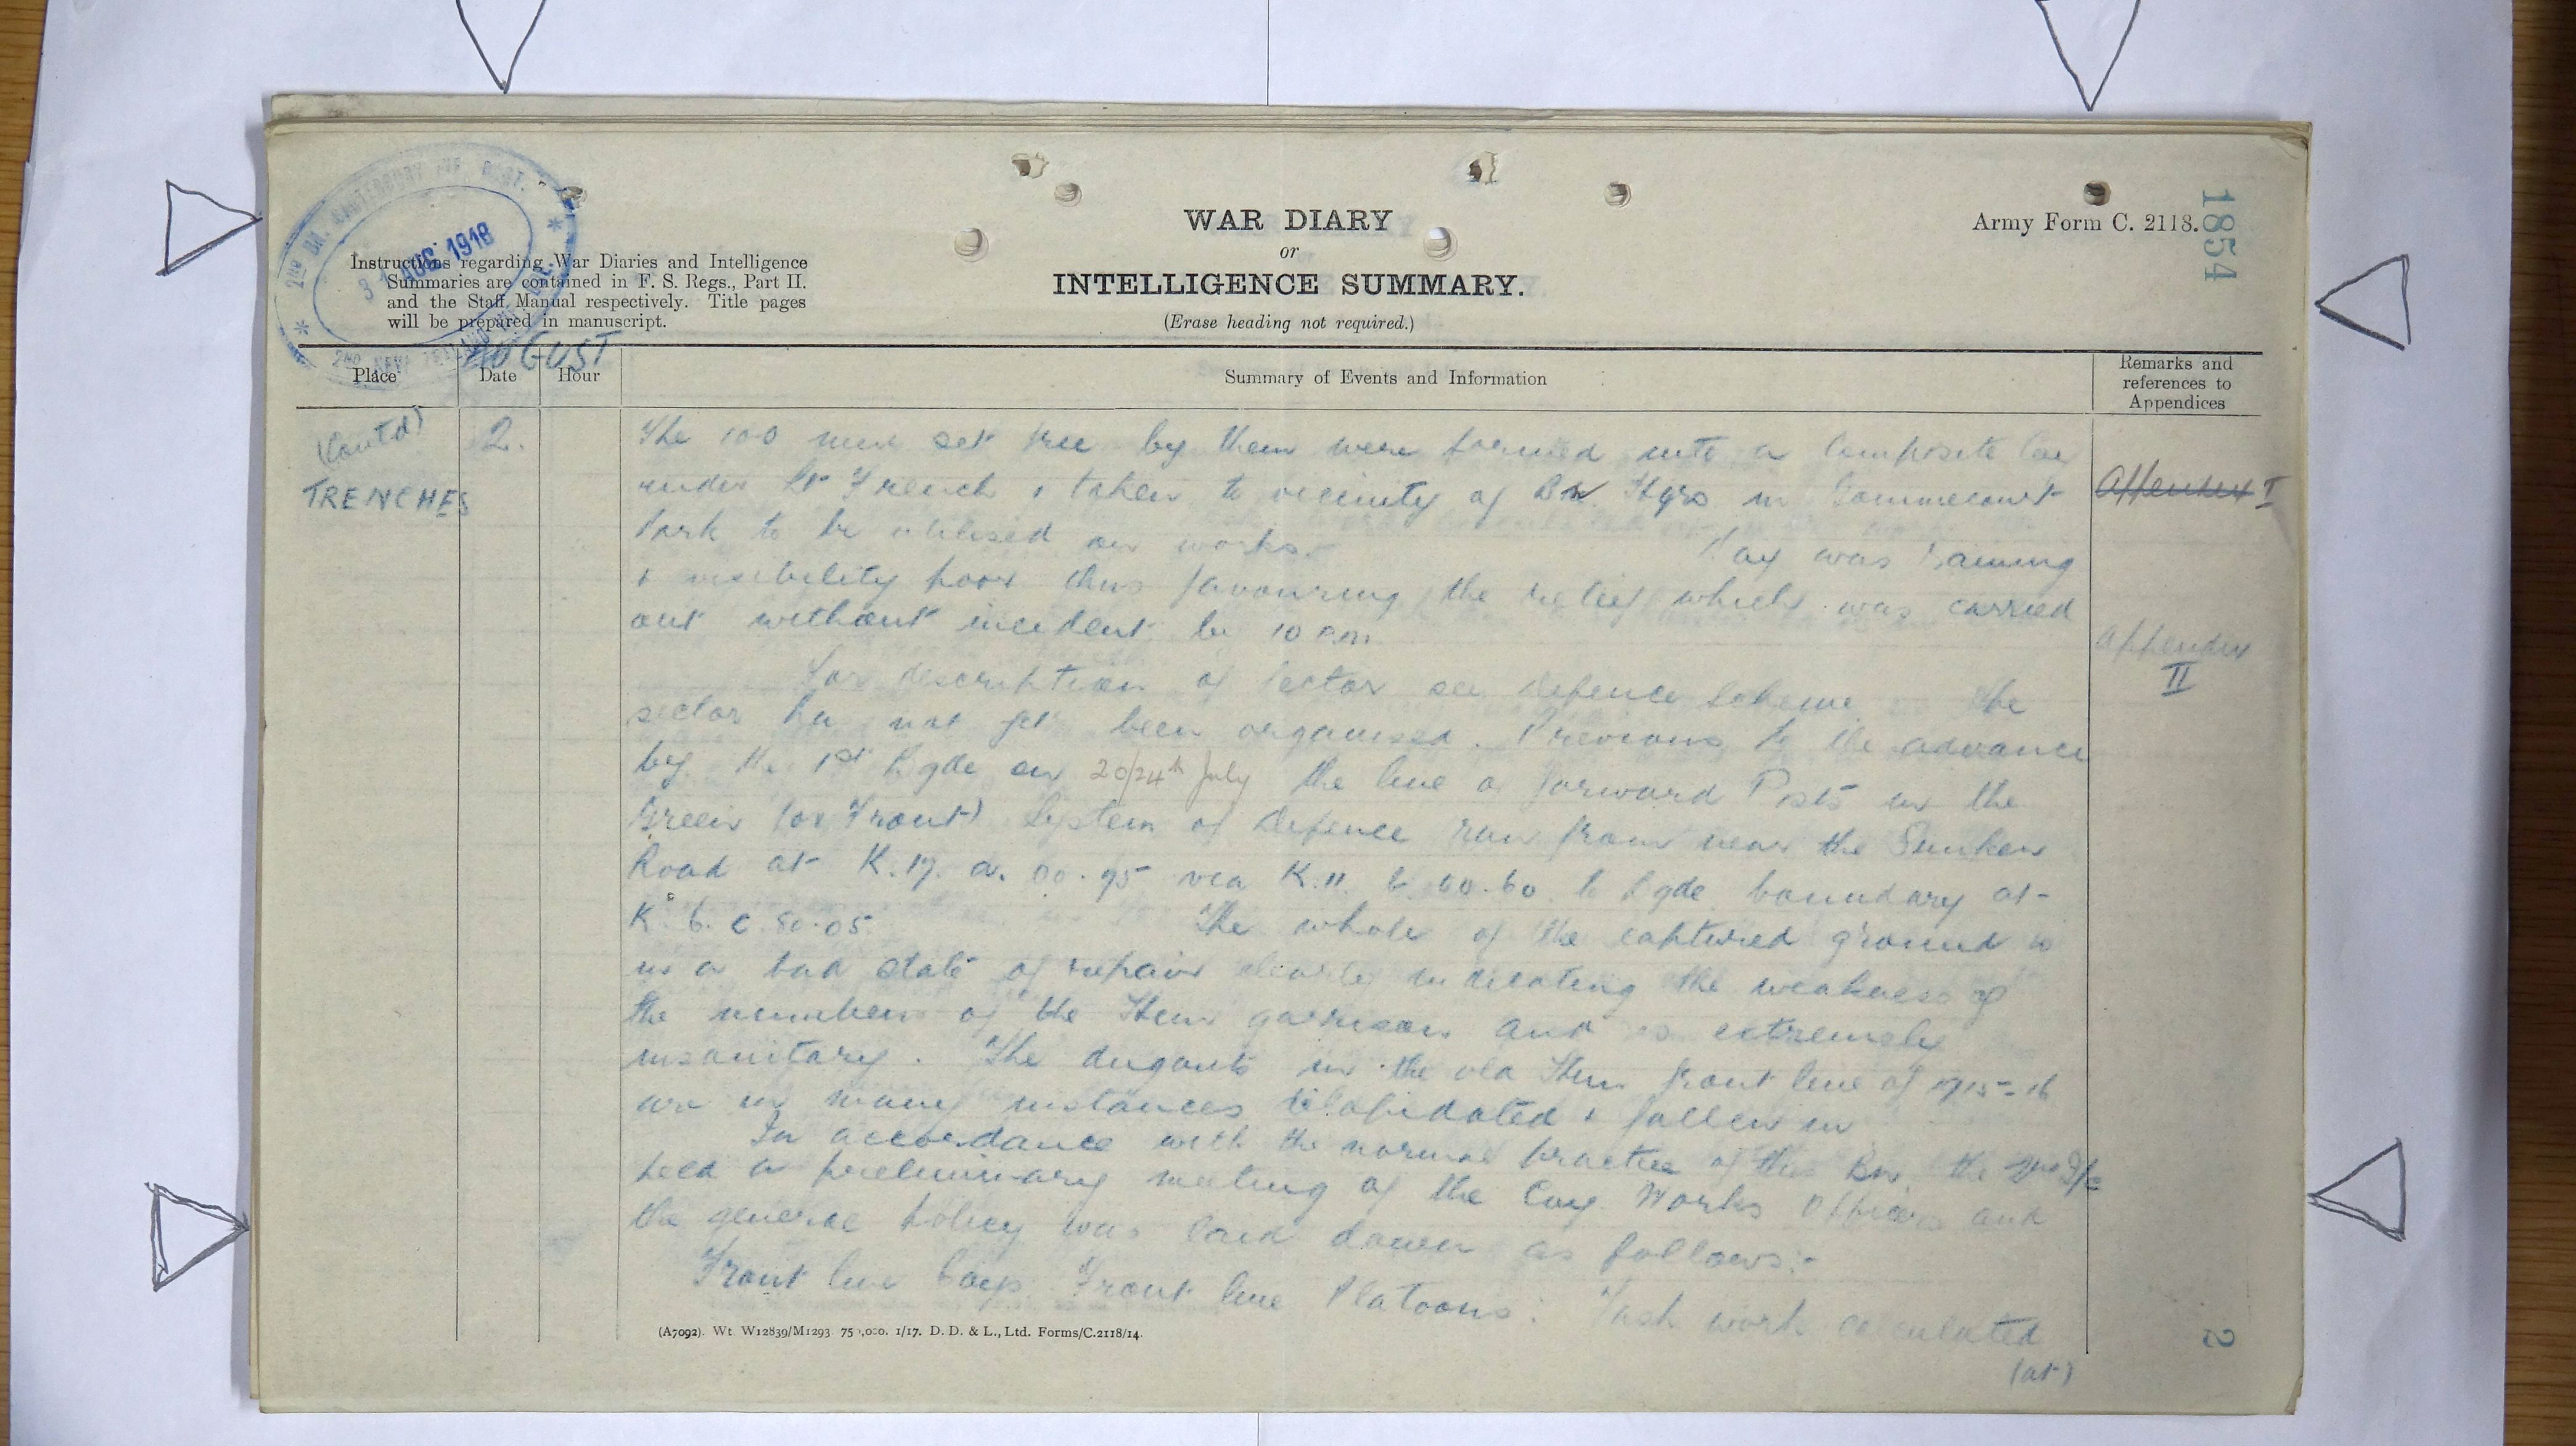 2ND BN. CANTERBURY INF. REGT.
31 AUG 1918
Army Form C. 2118.
1854
WAR DIARY
or
INTELLIGENCE SUMMARY.
(Erase heading not required.)
Instructions regarding War Diaries and Intelligence
Summaries are contained in F. S. Regs., Part II.
and the Staff Manual respectively. Title pages
will be prepared in manuscript.
AUGUST
Place Date Hour Summary of Events and Information Remarks and references to Appendices
(Contd) 2.
TRENCHES
The 100 men set free by them were formed into a Composite Coy
under Lt French & taken to vicinity of Bn Hqrs in Gommecourt
Park to be utilised on works. Day was raining
& visibility poor thus favouring the relief which was carried
out without incident by 10 pm.
For description of Sector see Defence Scheme The
sector has not yet been organised. Previous to the advance
by the 1st Bgde on 20/24th July the line of forward Posts in the
Green (or Front) System of Defence ran from near the Sunken
Road at K.17. a. 00.95 via K.11. b. 00.60 to Bgde boundary at
K. 6. c. 80.05. The whole of the captured ground is
in a bad state of repair clearly indicating the weakness of
the numbers of the Hun garrison and is extremely
insanitary. The dugouts in the old Hun front line of 1915-16
are in many instances dilapidated & fallen in
In accordance with the normal practice of this Bn. the
held a preliminary meeting of the Coy Works Officers and
the general policy was laid down as follows:-
Front line Coys. Front line Platoons: Task work calculated
(at)
Appendix I
Appendix
II
(A7092). Wt. W12839/M1293. 750,000. 1/17. D. D. & L., Ltd. Forms/C.2118/14.
2